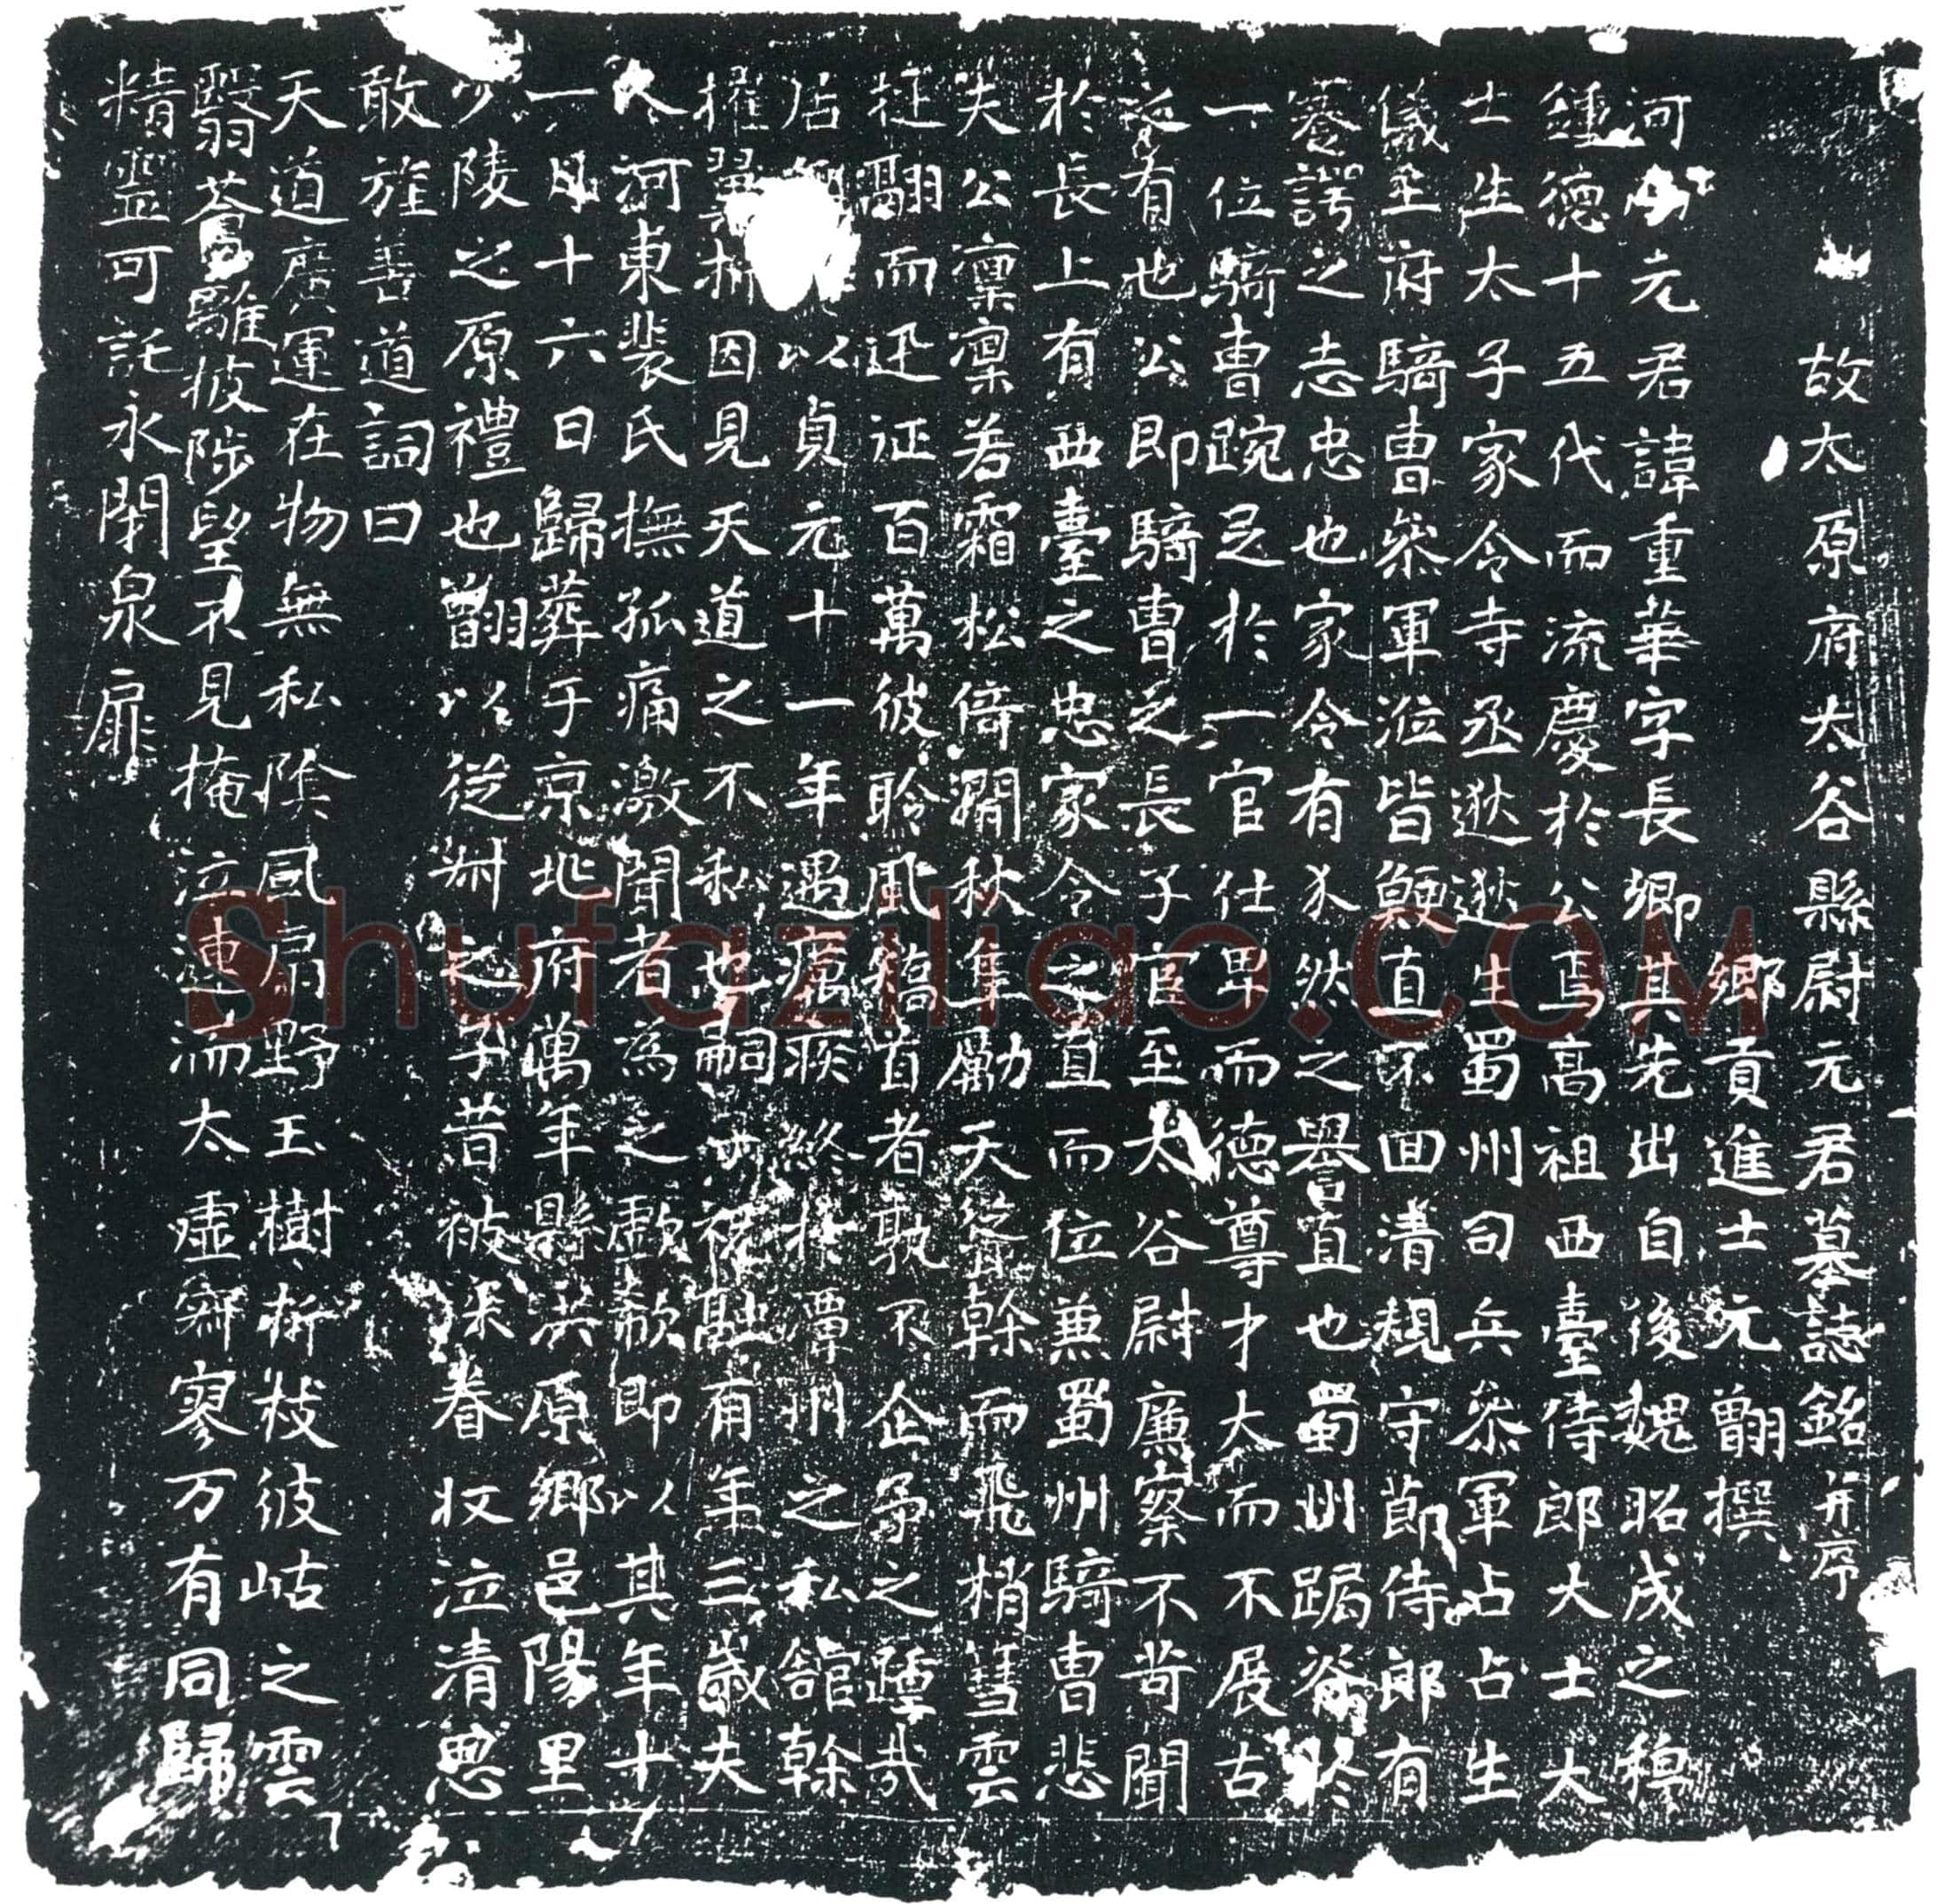 故太原府太谷縣尉元君墓誌銘并序
鄉貢進士元翾撰
河南元君諱重華字長卿其先出自後魏昭成之穆
鍾德十五代而流慶於公焉高祖西臺侍郎大士大
士生太子家令寺丞遜遜生蜀州司兵叅軍占占生
儀王府騎曹叅軍澁皆鯁直不回清規守節侍郎有
蹇諤之志忠也家令有水然之譽直也蜀州跼脊於
一位騎曹踠足於一官仕卑而德尊才大而不展古
之有也公即騎曹之長子官至太谷尉廉察不苛聞
於長上有西臺之忠家令之直而位兼蜀州騎曹悲
夫公凛凛若霜松倚澗秋隼勵天聳幹而飛梢彗雲
挺翮而迅征百萬彼聆風稿首者孰不企予之踵哉
居以貞元十一年遇癘疾終於潭州之私舘幹
摧翼拆因見天道之不私也嗣子有年三歲夫
人河東裴氏撫孤痛激聞者為之歔欷即以其年十
一月十六日歸葬于京兆府萬年縣洪原鄉邑陽里
少陵之原禮也翾以從之子昔彼深眷收泣清思
敢旌善道詞曰
天道廣運在物無私陰風扃野玉樹折枝彼岵之雲
翳蒼離彼陟望不見掩泣連洏太虛寂寥万有同歸
精靈可託永閉泉扉
Shufaziliao.COM